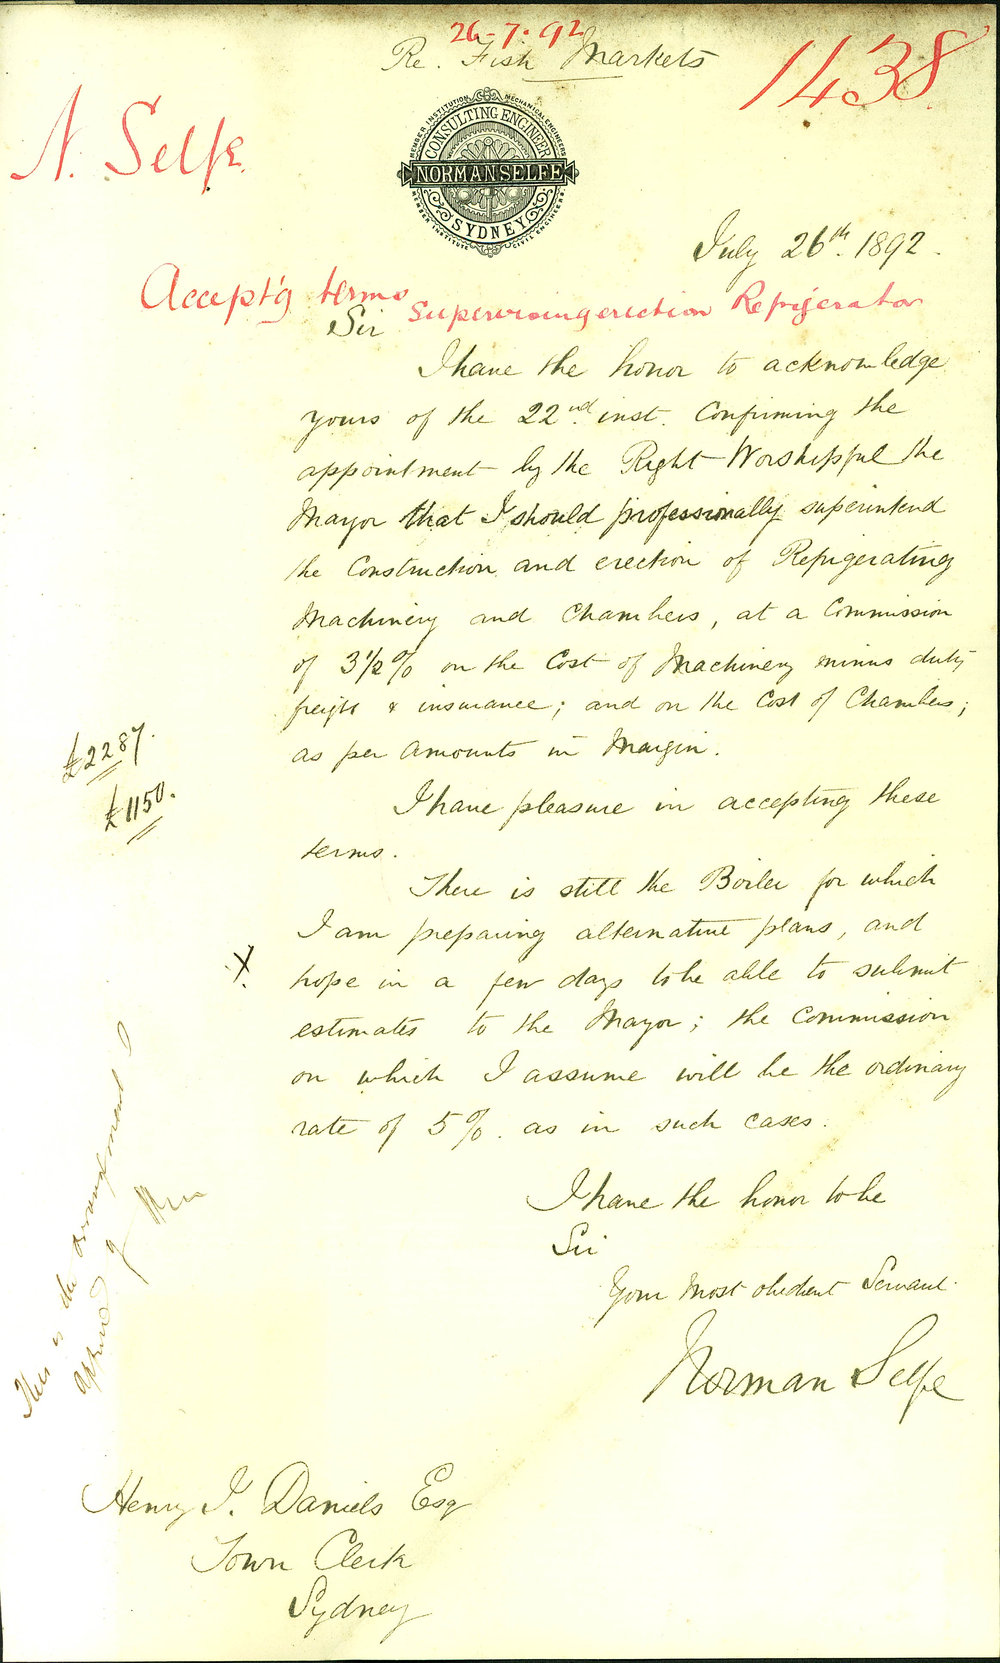 26-7-92
Re. Fish Markets
1438
N. Selfe.
MEMBER INSTITUTION MECHANICAL ENGINEERS
CONSULTING ENGINEER
NORMAN SELFE
SYDNEY
MEMBER INSTITUTE CIVIL ENGINEERS
July 26th. 1892.
Accept'g terms Supervising erection Refrigerator
Sir
I have the honor to acknowledge
yours of the 22nd. inst. Confirming the
appointment by the Right Worshipful the
Mayor that I should professionally superintend
the Construction and erection of Refrigerating
Machinery and Chambers, at a Commission
of 3 1/2 % on the Cost of Machinery minus duty
freight & insurance; and on the Cost of Chambers;
as per amounts in Margin.
£2287.
£1150.
I have pleasure in accepting these
terms.
There is still the Boiler for which
I am preparing alternative plans, and
X
hope in a few days to be able to submit
estimates to the Mayor; the Commission
on which I assume will be the ordinary
rate of 5%. as in such cases.
This is the arrangement I
approved of
I have the honor to be
Sir
Your Most obedient Servant.
Norman Selfe
Henry J. Daniels Esq
Town Clerk
Sydney